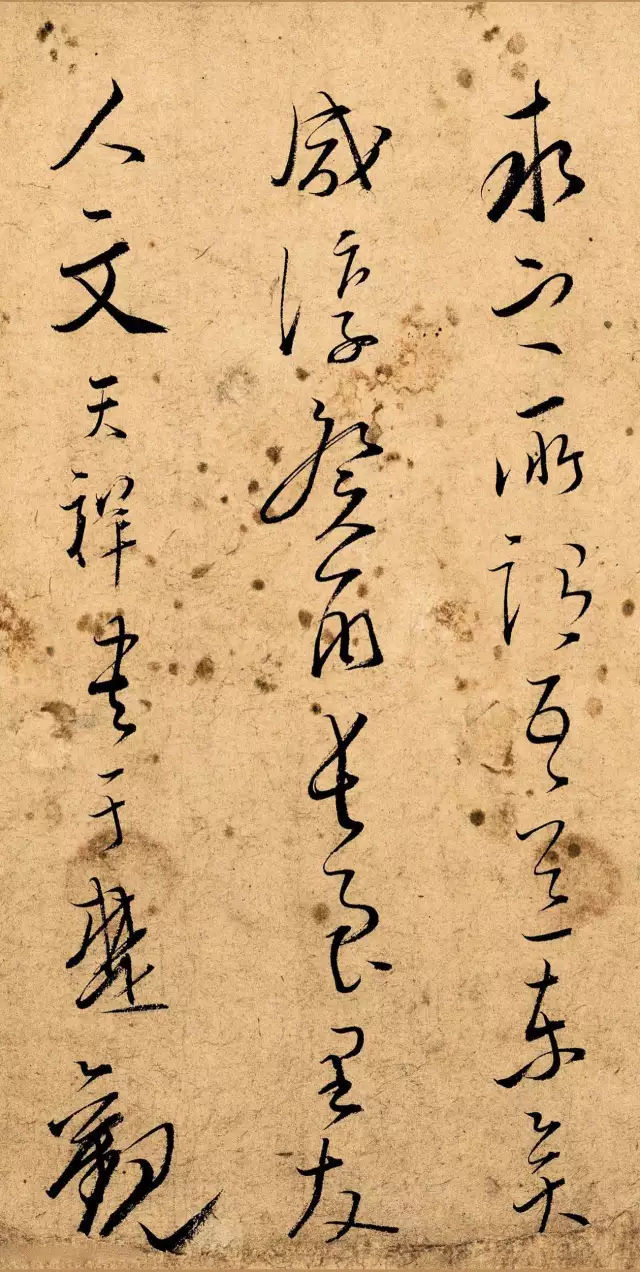 求之所謂吾道東矣
咸淳癸酉長夏里友
人文天祥書于楚觀